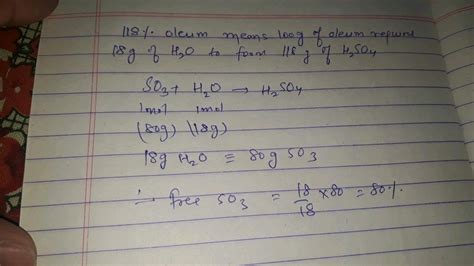 118% oleum means 100g of oleum require
18g of H2O to form 118g of H2SO4
SO3 + H2O → H2SO4
1mol 1mol
(80g) (18g)
18g H2O ≡ 80g SO3
∴ free SO3 = 18/18 × 80 = 80%